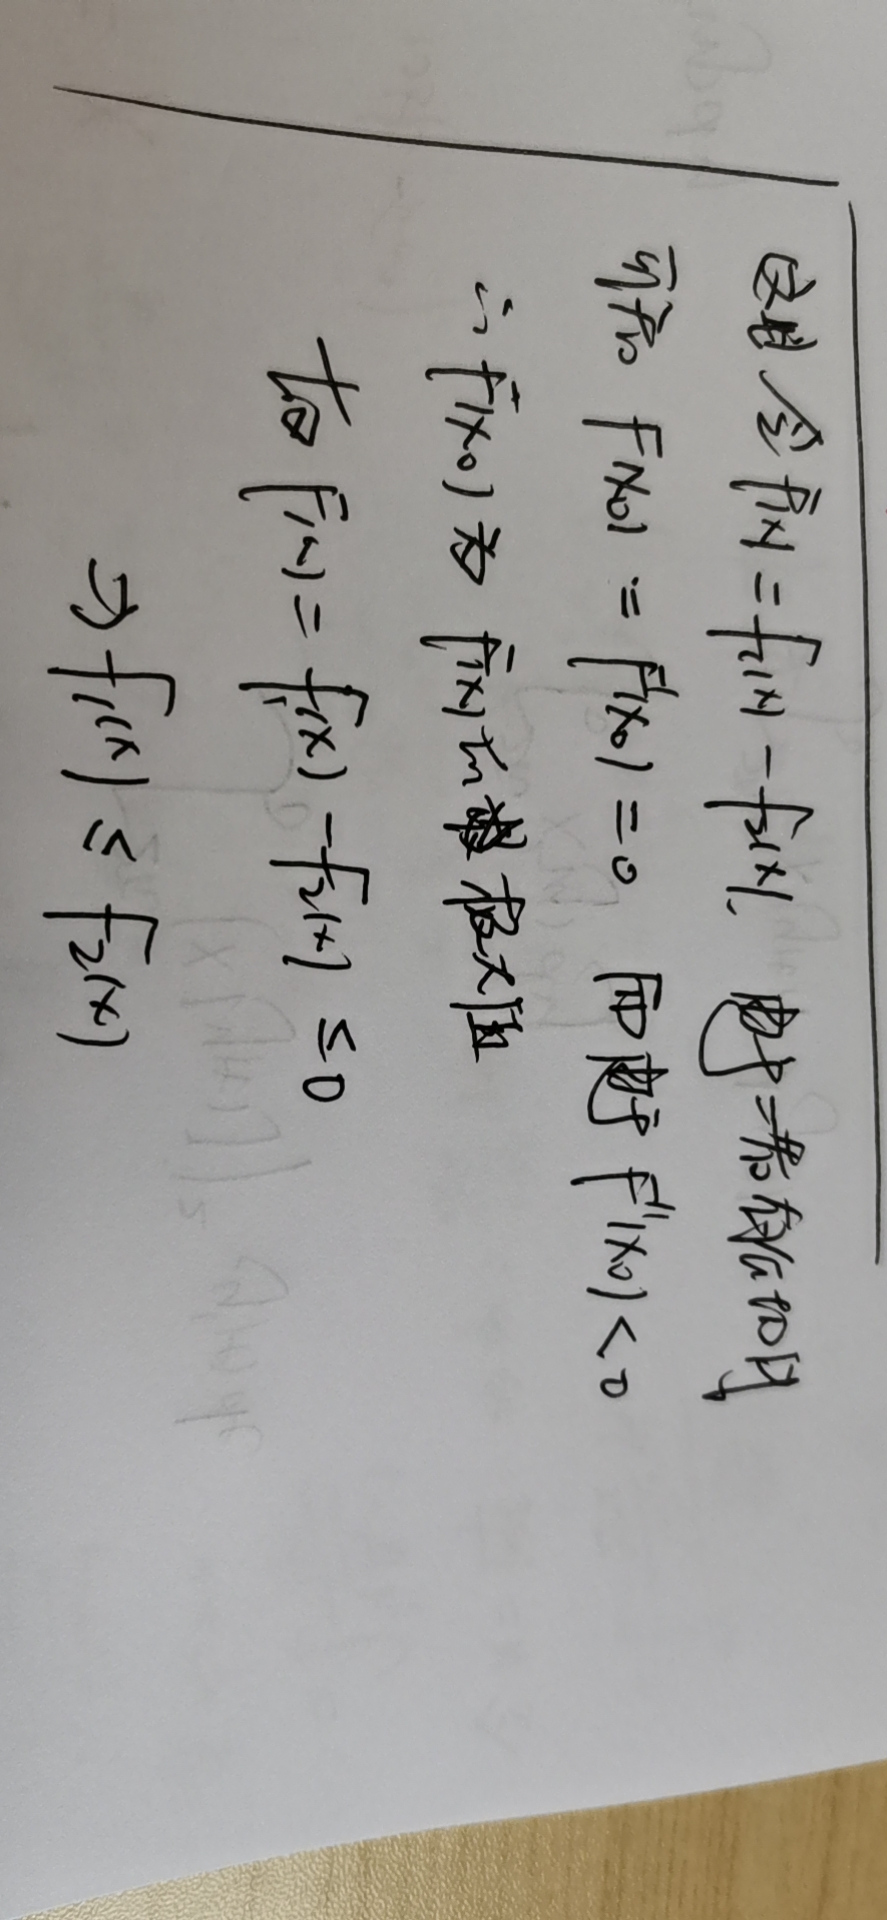 证明 令 F(x) = f₁(x) - f₂(x), 由于二者有公切
可知 F(x₀) = F'(x₀) = 0 而由于 F''(x₀) < 0
∴ F(x₀) 为 F(x) 的 极大值
有 F(x) = f₁(x) - f₂(x) ≤ 0
⇒ f₁(x) ≤ f₂(x)